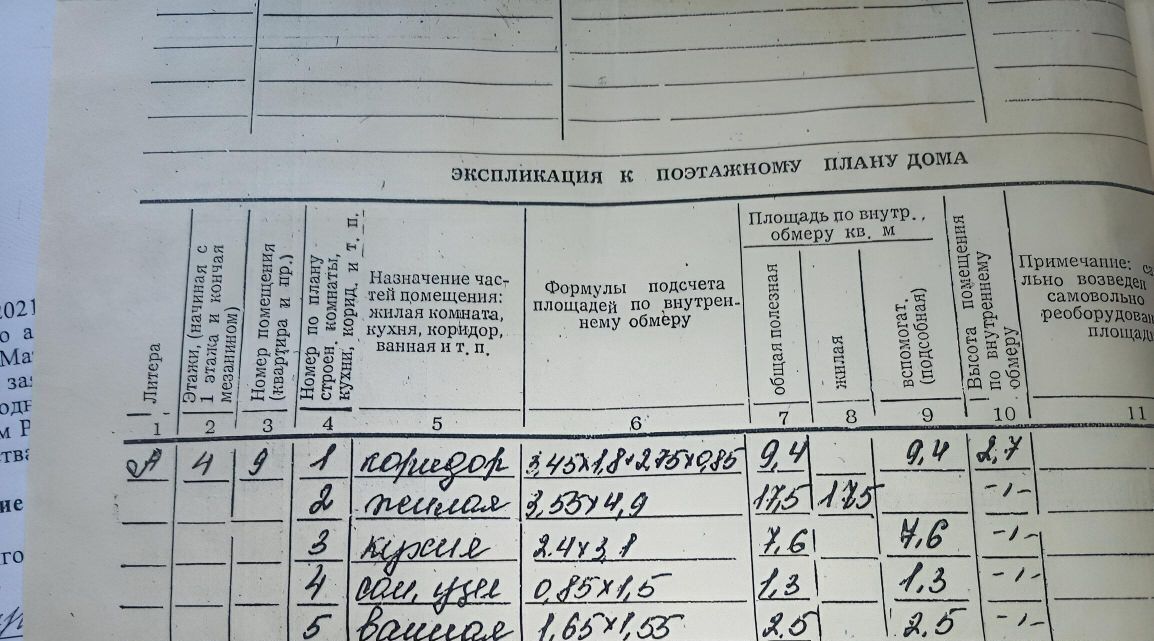 ЭКСПЛИКАЦИЯ К ПОЭТАЖНОМУ ПЛАНУ ДОМА
Литера
Этажи, (начиная с
1 этажа и кончая
мезанином)
Номер помещения
(квартира и пр.)
Номер по плану
строен. комнаты,
кухни, корид. и т. п.
Назначение час-
тей помещения:
жилая комната,
кухня, коридор,
ванная и т. п.
Формулы подсчета
площадей по внутрен-
нему обмеру
Площадь по внутр.,
обмеру кв. м
общая полезная
жилая
вспомогат.
(подсобная)
Высота помещения
по внутреннему
обмеру
Примечание: са
льно возведен
самовольно
реоборудован
площадь
1 2 3 4 5 6 7 8 9 10 11
А 4 9 1 коридор 3,45×1,8+2,75×0,85 9,4 9,4 2,7
2 жилая 3,55×4,9 17,5 17,5 -ı-
3 кухня 2.4×3,1 7,6 7,6 -ı-
4 сан, узел 0,85×1,5 1,3 1,3 -ı-
5 ванная 1,65×1,55 2,5 2,5 -ı-
2021